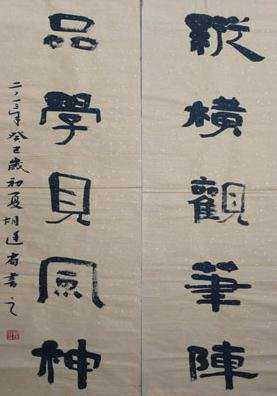 縱橫觀筆陣
品學見風神
二〇一三年癸巳歲初夏胡達省書之